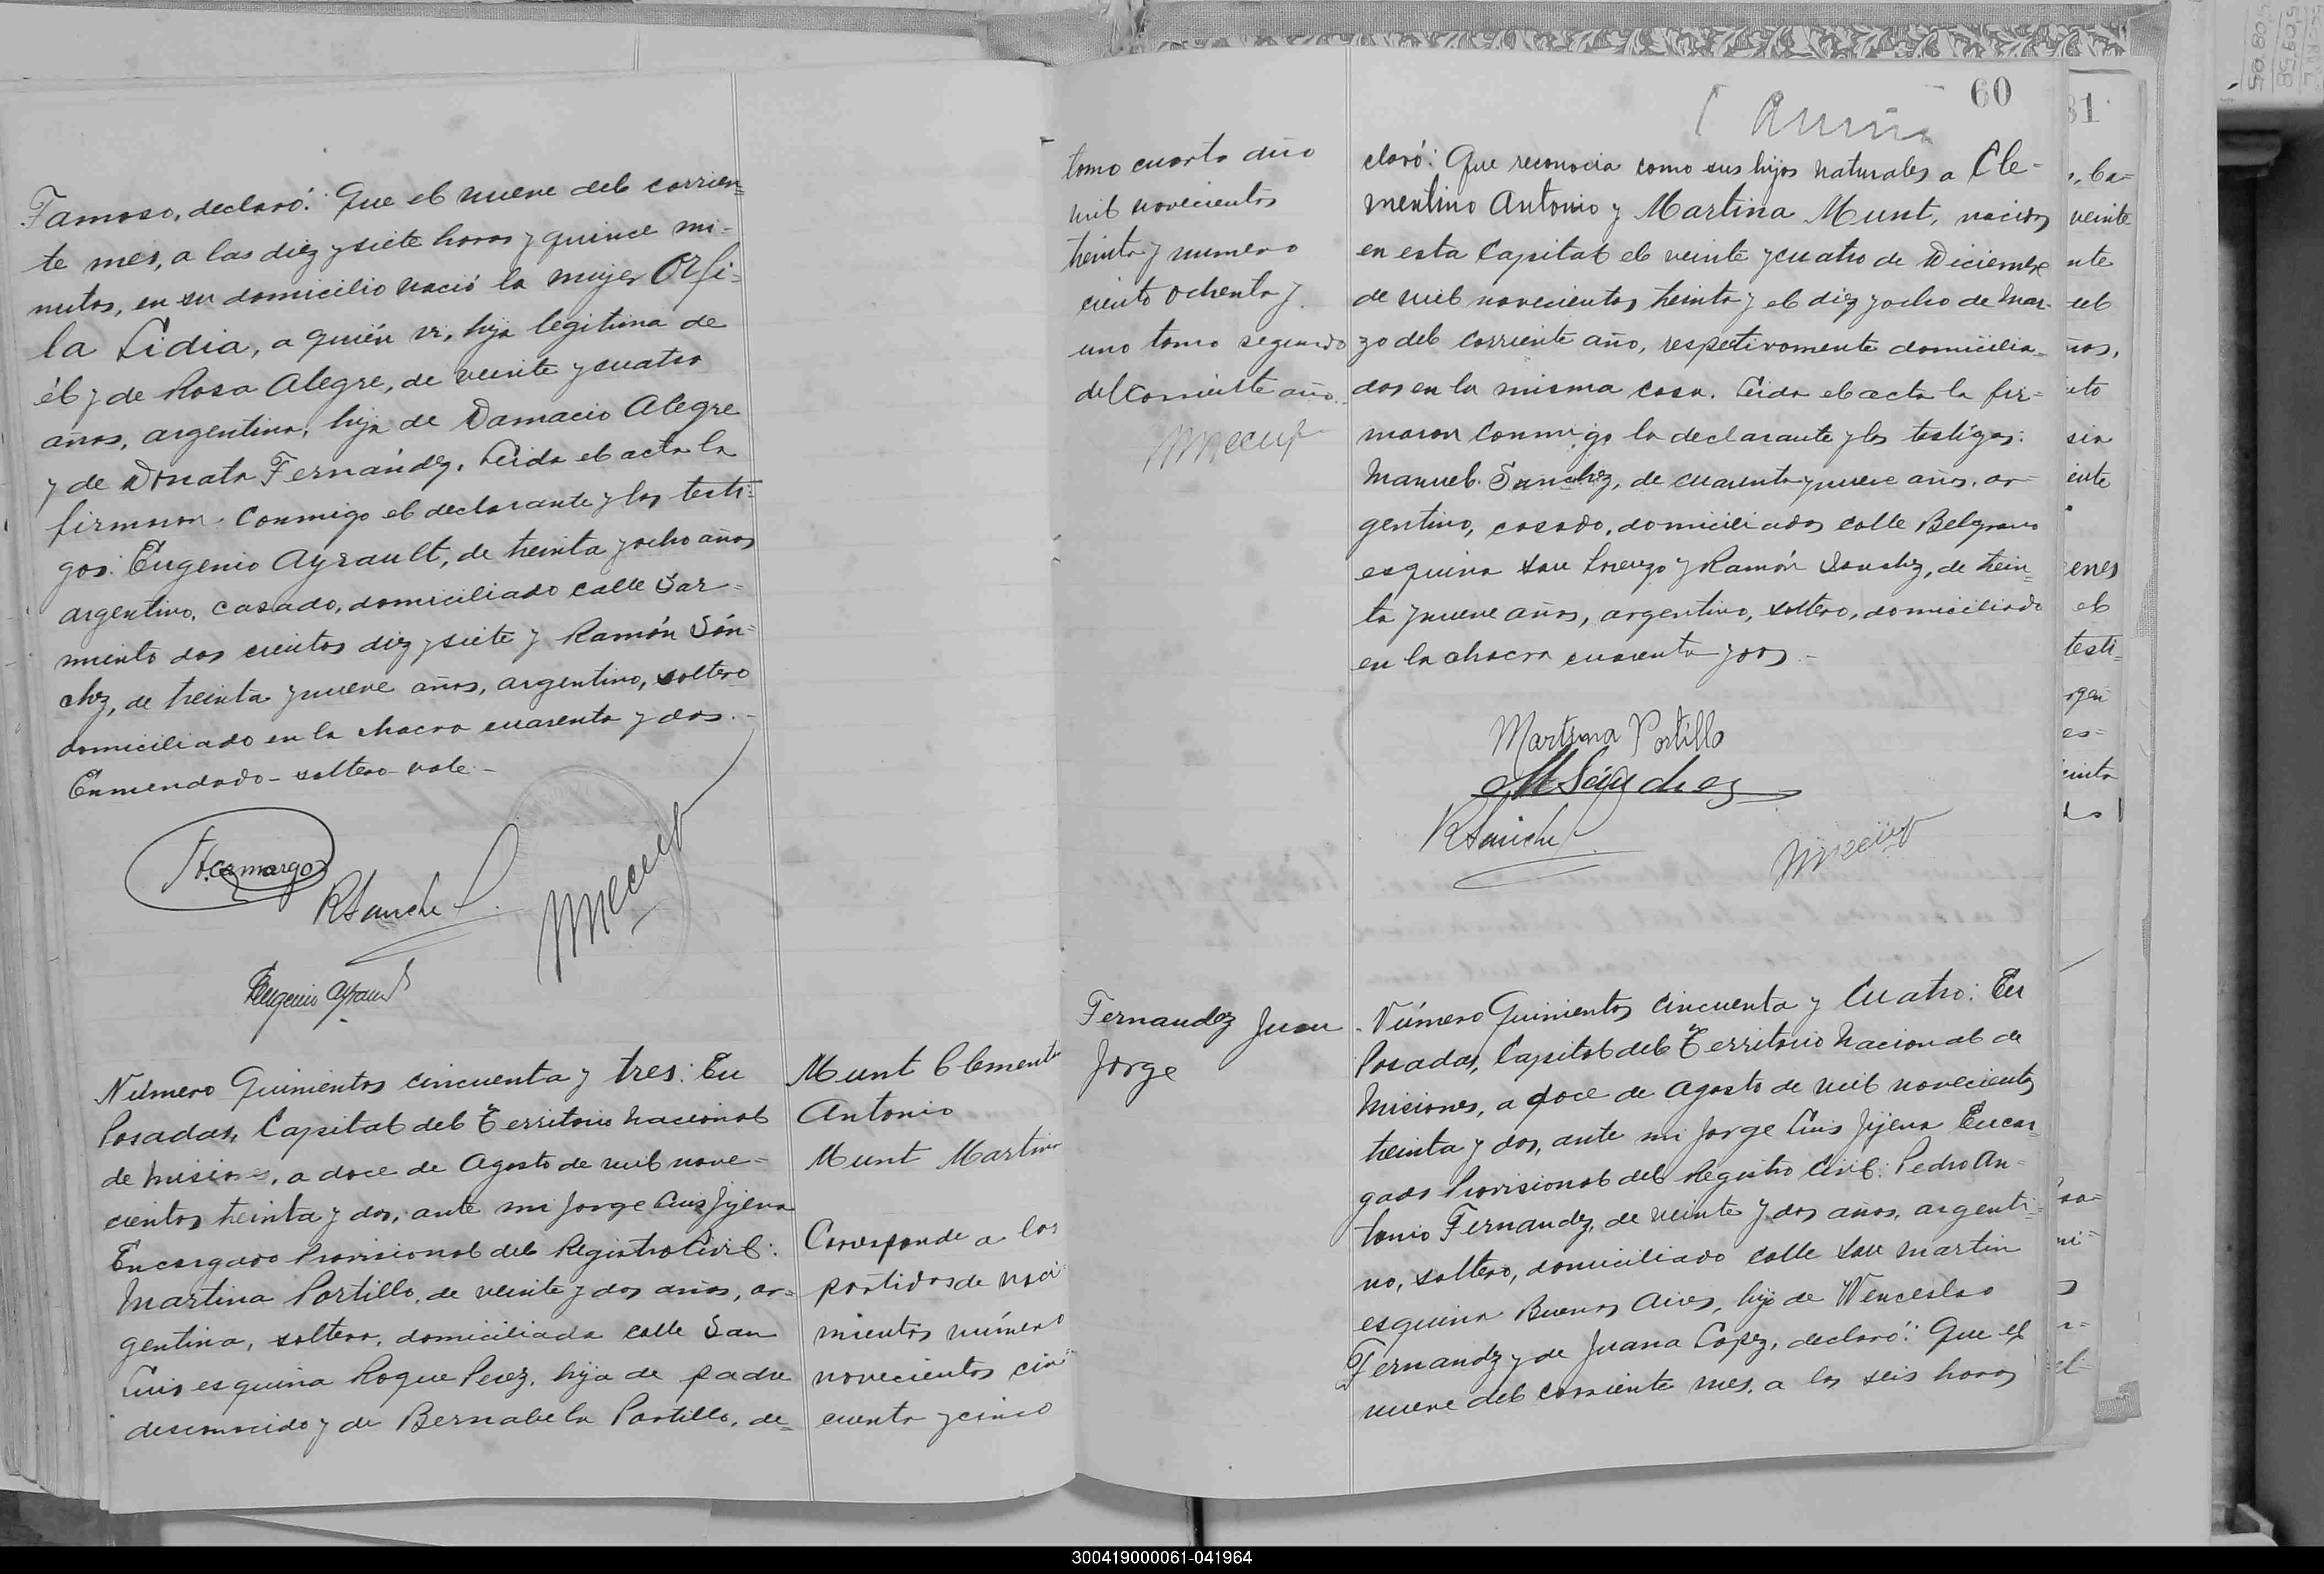 Famoso, declaró: Que el nueve del corrien=
te mes, a las diez y siete horas y quince mi-
nutos, en su domicilio nació la mujer Orfi-
la Lidia, a quién vi, hija legitima de
él y de Rosa Alegre, de veinte y cuatro
años, argentina, hija de Damacio Alegre
y de Donata Fernández. Leida el acta la
firmaron conmigo el declarante y los testi=
gos: Eugenio Ayrault, de treinta y ocho años
argentino, casado, domiciliado calle Sar=
miento dos cientos diez y siete y Ramón Sán=
chez, de treinta y nueve años, argentino, soltero
domiciliado en la chacra cuarenta y dos.-
Enmendado - soltero - vale.-
Camargo
R Sanche
Eugenio Ayrault
Número Quinientos cincuenta y tres: En
Posadas, Capital del Territorio Nacional
de Misiones, a doce de Agosto de mil nove=
cientos treinta y dos, ante mi Jorge Luis Jijena
Encargado Provisional del Registro Civil:
Martina Portillo, de veinte y dos años, ar=
gentina, soltera, domiciliada calle San
Luis esquina Roque Perez, hija de padre
desconocido y de Bernabela Portillo, de=
Munt Clemente
Antonio
Munt Martina
Corresponde a las
partidas de naci
mientos número
novecientos cin
cuenta y cinco
tomo cuarto año
mil novecientos
treinta y numero
ciento ochenta y
uno tomo segundo
del corriente año.
60
claró: Que reconocia como sus hijos naturales a Cle-
mentino Antonio y Martina Munt, nacidos
en esta Capital el veinte y cuatro de Diciembre
de mil novecientos treinta y el diez y ocho de Mar-
zo del corriente año, respetivamente domicilia=
dos en la misma casa. Leida el acta la fir=
maron conmigo la declarante y los testigos:
Manuel Sanchez, de cuarenta y nueve años, ar=
gentino, casado, domiciliados calle Belgrano
esquina San Lorenzo y Ramón Sanchez, de trein=
ta y nueve años, argentino, soltero, domiciliado
en la chacra cuarenta y dos.-
Martina Portillo
M Sánchez
R Sanche
Fernandez Juan
Jorge
Número Quinientos cincuenta y Cuatro: En
Posadas, Capital del Territorio Nacional de
Misiones, a doce de Agosto de mil novecientos
treinta y dos, ante mi Jorge Luis Jijena Encar=
gado Provisional del Registro Civil: Pedro An=
tonio Fernandez, de veinte y dos años, argenti=
no, soltero, domiciliado calle San Martin
esquina Buenos Aires, hijo de Wenceslao
Fernandz y de Juana Lopez, declaró: Que el
nueve del corriente mes, a las seis horas
81
veinte
300419000061-041964